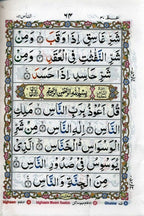 شَرِّ غَاسِقٍ إِذَا وَقَبَ ۝ وَمِنْ
شَرِّ النَّفّٰثٰتِ فِي الْعُقَدِ ۝ وَمِنْ
شَرِّ حَاسِدٍ إِذَا حَسَدَ ۝
قُلْ أَعُوذُ بِرَبِّ النَّاسِ ۝ مَلِكِ
النَّاسِ ۝ إِلٰهِ النَّاسِ ۝ مِنْ
شَرِّ الْوَسْوَاسِ الْخَنَّاسِ ۝ الَّذِي
يُوَسْوِسُ فِي صُدُورِ النَّاسِ ۝
مِنَ الْجِنَّةِ وَالنَّاسِ ۝